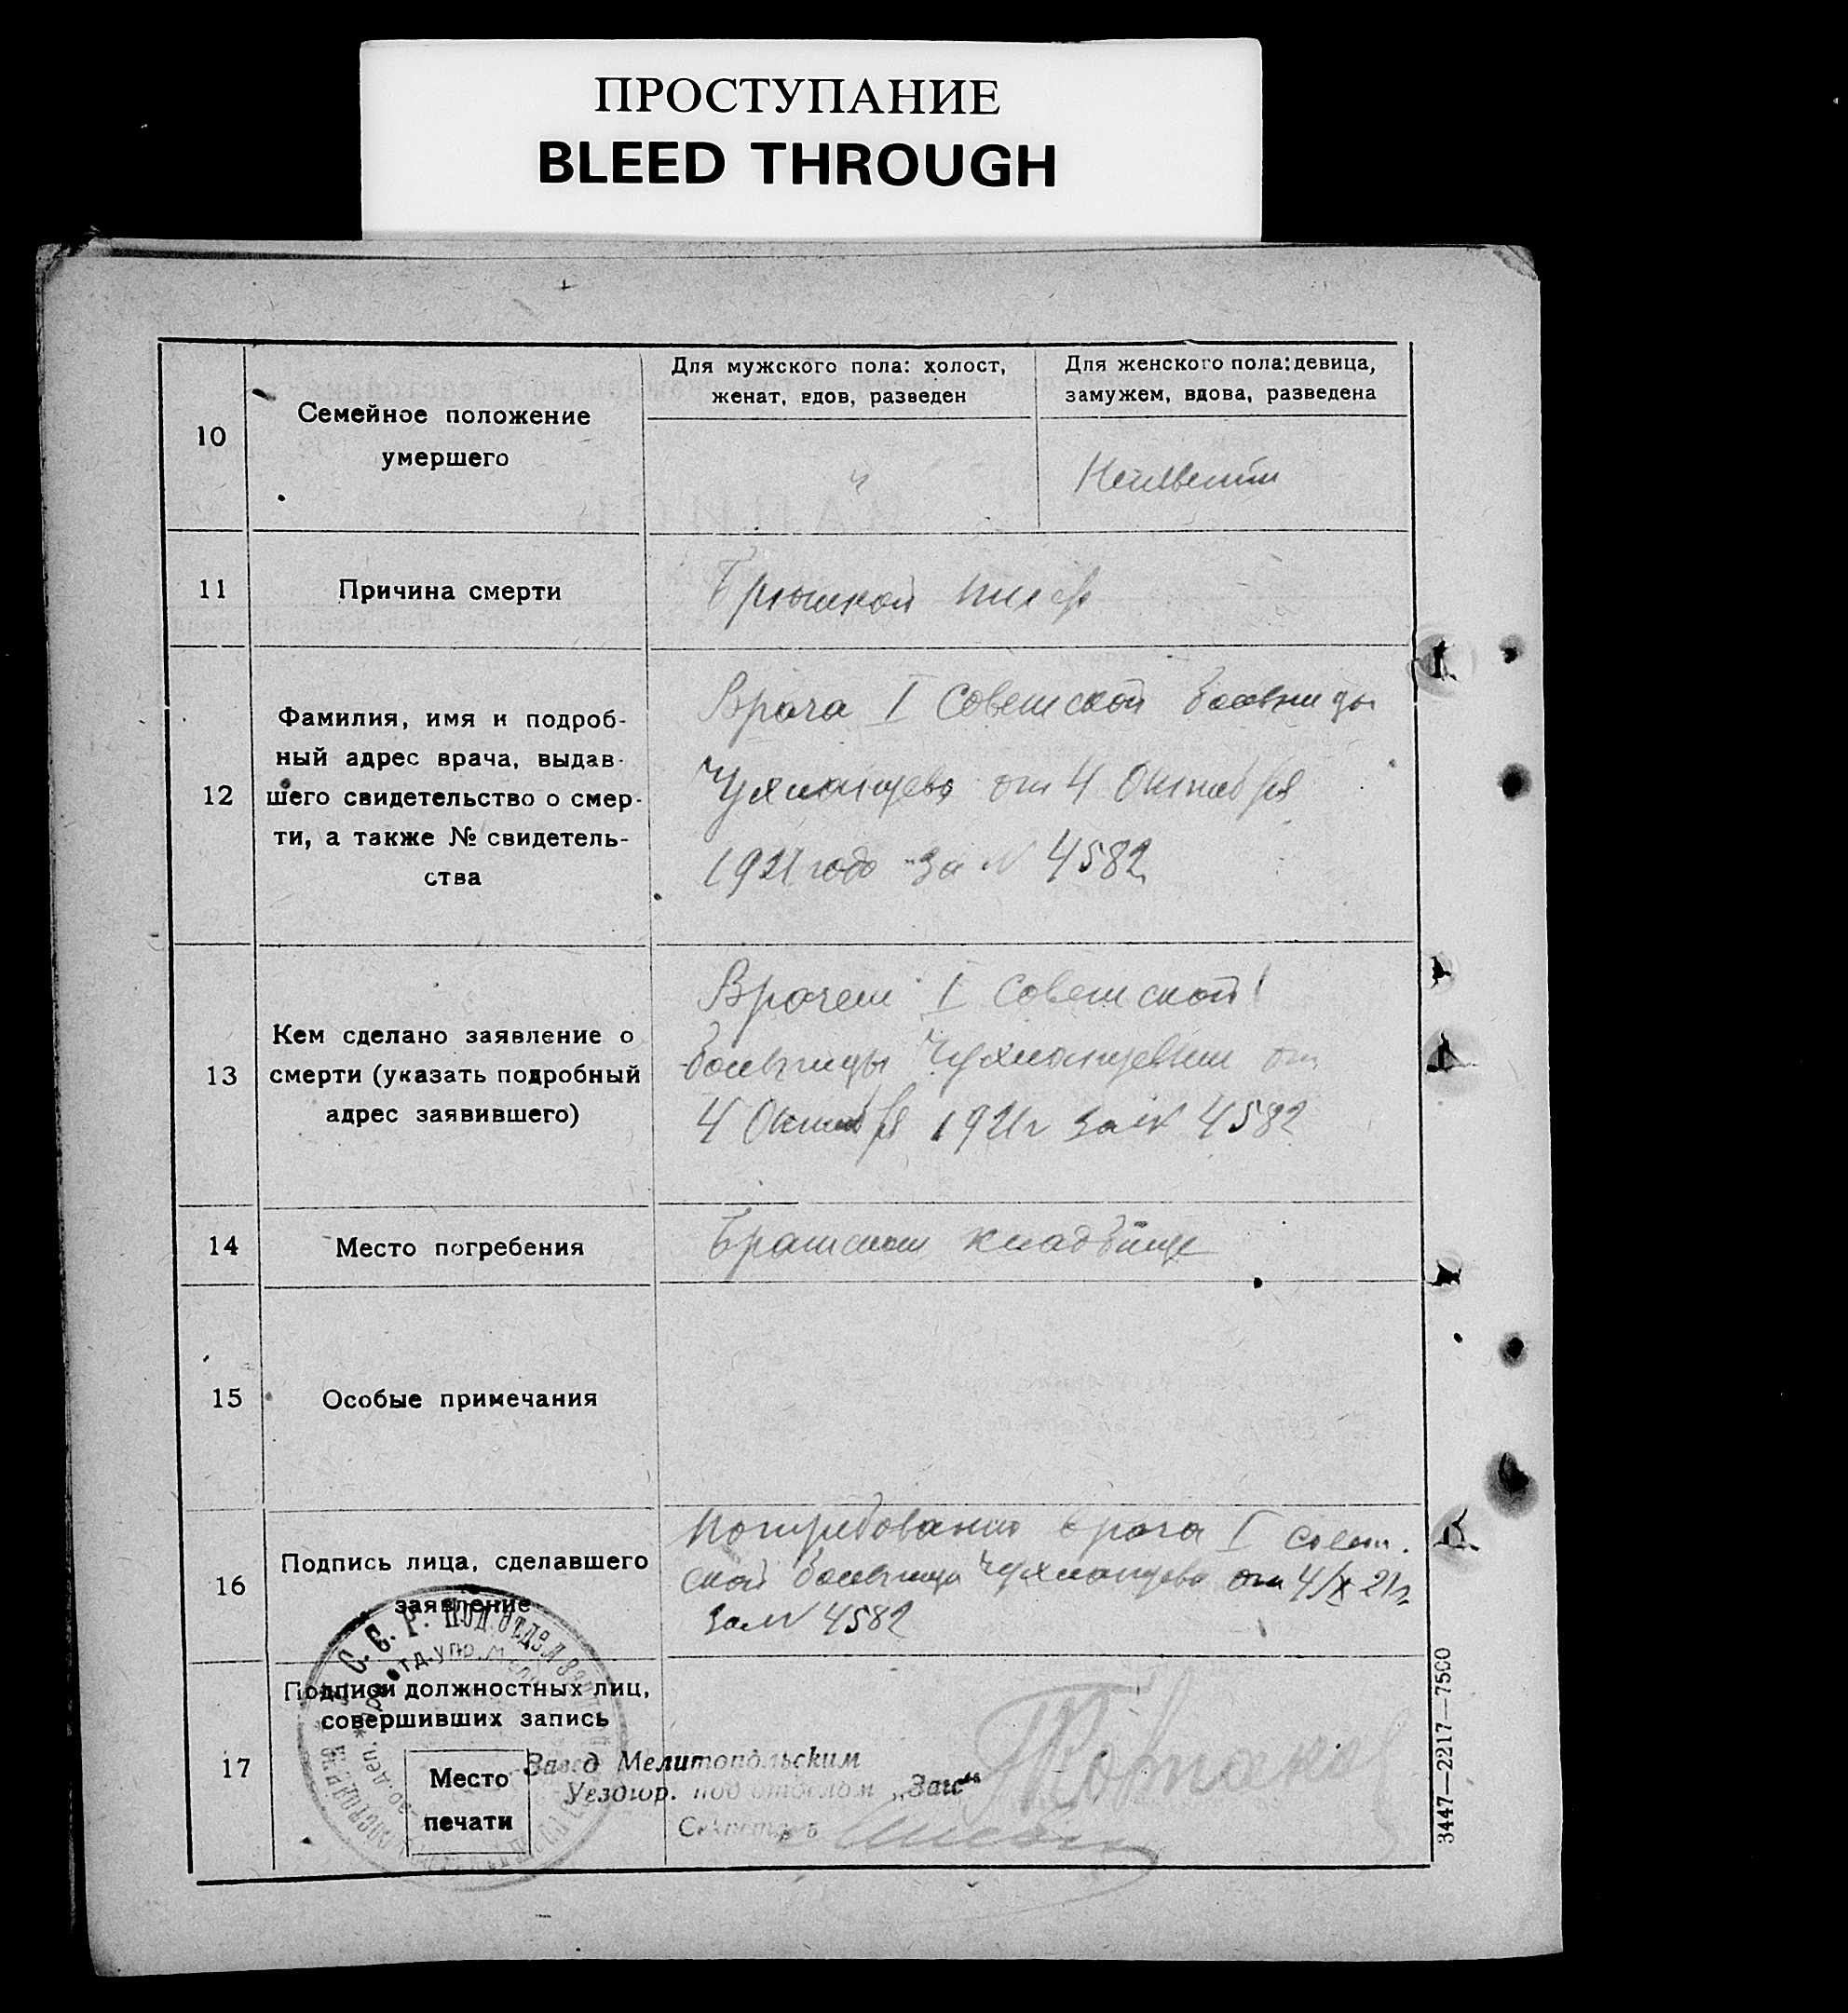 ПРОСТУПАНИЕ
BLEED THROUGH
10
Семейное положение
умершего
Для мужского пола: холост,
женат, вдов, разведен
Для женского пола: девица,
замужем, вдова, разведена
11
Причина смерти
Брюшной тиф
12
Фамилия, имя и подроб-
ный адрес врача, выдав-
шего свидетельство о смер-
ти, а также № свидетель-
ства
Врача I Советской больницы
от 4 Октября
1921 года за № 4582
13
Кем сделано заявление о
смерти (указать подробный
адрес заявившего)
Врачем I Советской
больницы от
4 Октября 1921 г за № 4582
14
Место погребения
Братском кладбище
15
Особые примечания
16
Подпись лица, сделавшего
заявление
врача I Совет.
ской больницы от 4/X 21 г.
за № 4582
17
Подписи должностных лиц,
совершивших запись
Место
печати
С. С. Р. Под. отдел
отд. упр.
Завед Мелитопольским
Уездгор. под отделом „Загс“
Секретарь
3447—2217—7500